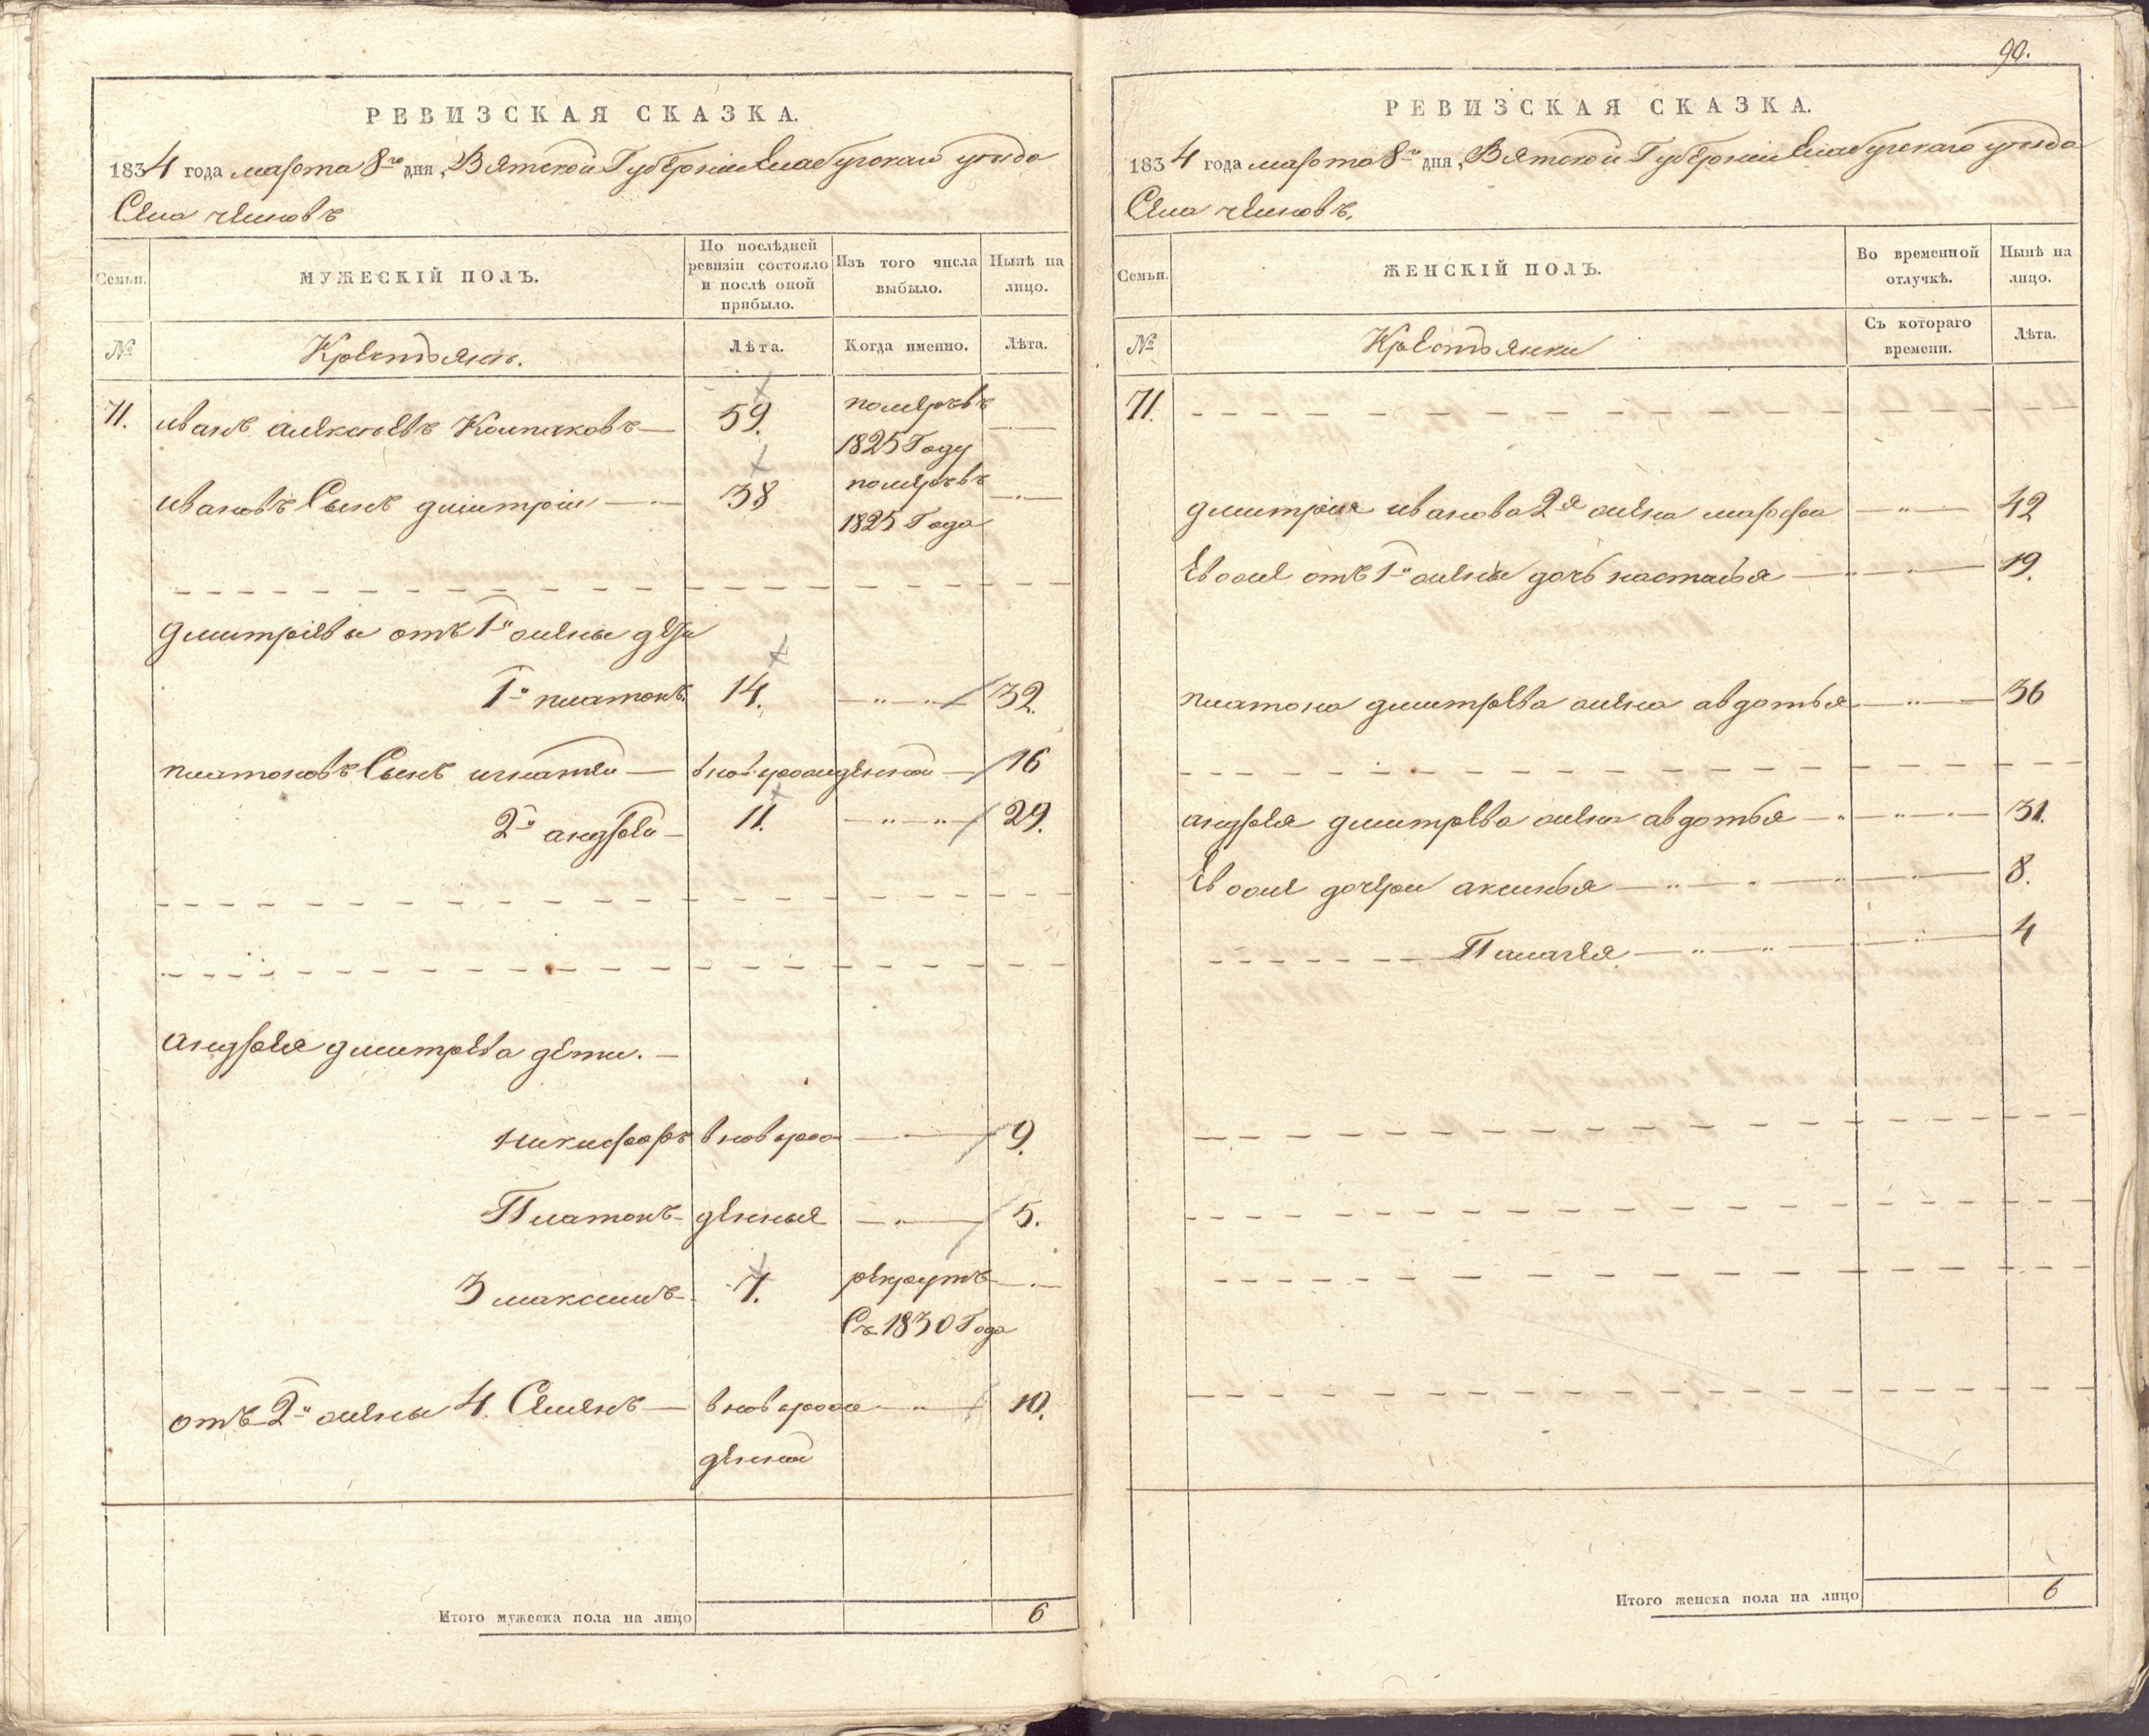 РЕВИЗСКАЯ СКАЗКА.
1834 года марта 8го дня, Вятской Губерніи Елабугскаго уезда
Села челновъ
Семьи. МУЖЕСКІЙ ПОЛЪ. По послѣдней ревизіи состояло и послѣ оной прибыло. Изъ того числа выбыло. Нынѣ на лицо.
№ Крестьянъ. Лѣта. Когда именно. Лѣта.
71. иванъ алексѣевъ Колпаковъ — 59. померъ въ 1825 Году
ивановъ Сынъ дмитріи — 38 померъ въ 1825 Года
дмитріевы отъ 1й жены дети
1й платонъ. 14. 32.
платоновъ Сынъ игнатеи — вновьрожденной — 16
2й андреи — 11. 29.
андрея дмитрева дети. —
никифоръ вноврож 9.
Платонъ — денныя 5.
3 максимъ 7. рекрутъ
Съ 1830 Года
отъ 2й жены 4. Семенъ — вноврож 10.
денной
Итого мужеска пола на лицо 6
90.
РЕВИЗСКАЯ СКАЗКА.
1834 года марта 8го дня, Вятской Губерніи Елабугскаго уезда
Села челновъ.
Семьи. ЖЕНСКІЙ ПОЛЪ. Во временной отлучкѣ. Нынѣ на лицо.
№ Крестьянки Съ котораго времени. Лѣта.
71.
дмитрия иванова 2я жена марфа 42
Евоже отъ 1й жены дочь настасья 19.
платона дмитрева жена авдотья 36
андрея дмитрева жена авдотья 31.
Евоже дочери аксинья 8.
Палагея 4
Итого женска пола на лицо 6